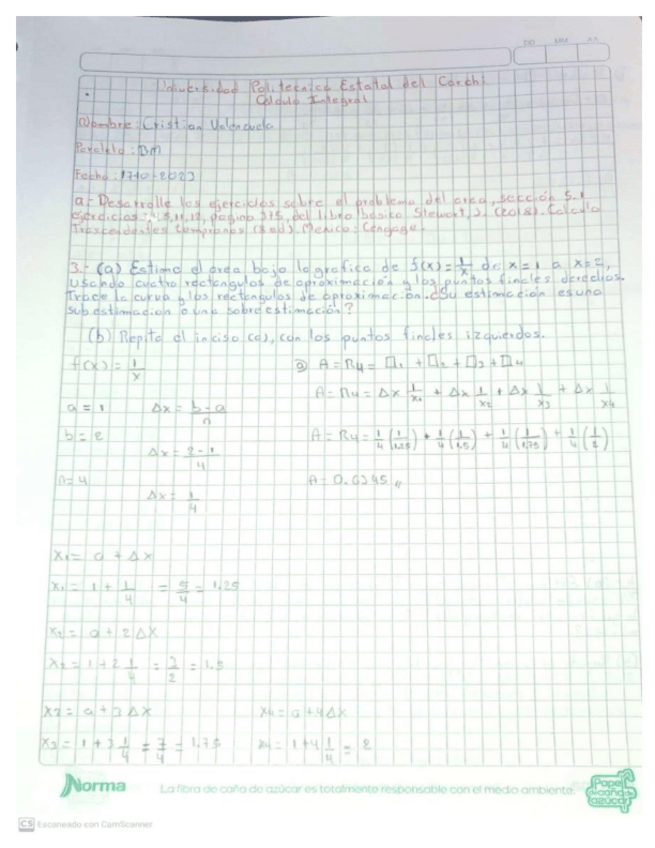 DD MM AA
Universidad Politecnica Estatal del Carchi
Calculo Integral
Nombre: Cristian Valenzuela
Paralelo: BM
Fecha: 17-10-2023
a.- Desarrolle los ejercicios sobre el problema del area, sección 5.1
ejercicios: 5, 11, 12, pagina 375, del libro basico Stewart, J. (2018). Calculo
Trascendentes tempranas (8 ed). Mexico: Cengage.
3.- (a) Estima el area bajo la grafica de f(x) = 1/x de x=1 a x=2,
usando cuatro rectangulos de aproximación y los puntos finales derechos.
Trace la curva y los rectangulos de aproximación. ¿Su estimación es una
subestimacion o una sobreestimación?
(b) Repita el inciso (a), con los puntos finales izquierdos.
f(x) = 1/x a) A = R4 = □1 + □2 + □3 + □4
A = R4 = Δx 1/x1 + Δx 1/x2 + Δx 1/x3 + Δx 1/x4
a = 1 Δx = b-a/n
b = 2 A = R4 = 1/4 (1/1.25) + 1/4 (1/1.5) + 1/4 (1/1.75) + 1/4 (1/2)
Δx = 2-1/4
n = 4 A = 0.6345 //
Δx = 1/4
x1 = a + Δx
x1 = 1 + 1/4 = 5/4 = 1.25
x2 = a + 2Δx
x2 = 1 + 2 1/4 = 3/2 = 1.5
x3 = a + 3Δx x4 = a + 4Δx
x3 = 1 + 3 1/4 = 7/4 = 1.75 x4 = 1 + 4 1/4 = 2
Norma La fibra de caña de azúcar es totalmente responsable con el medio ambiente. Papel de caña de azúcar
CS Escaneado con CamScanner